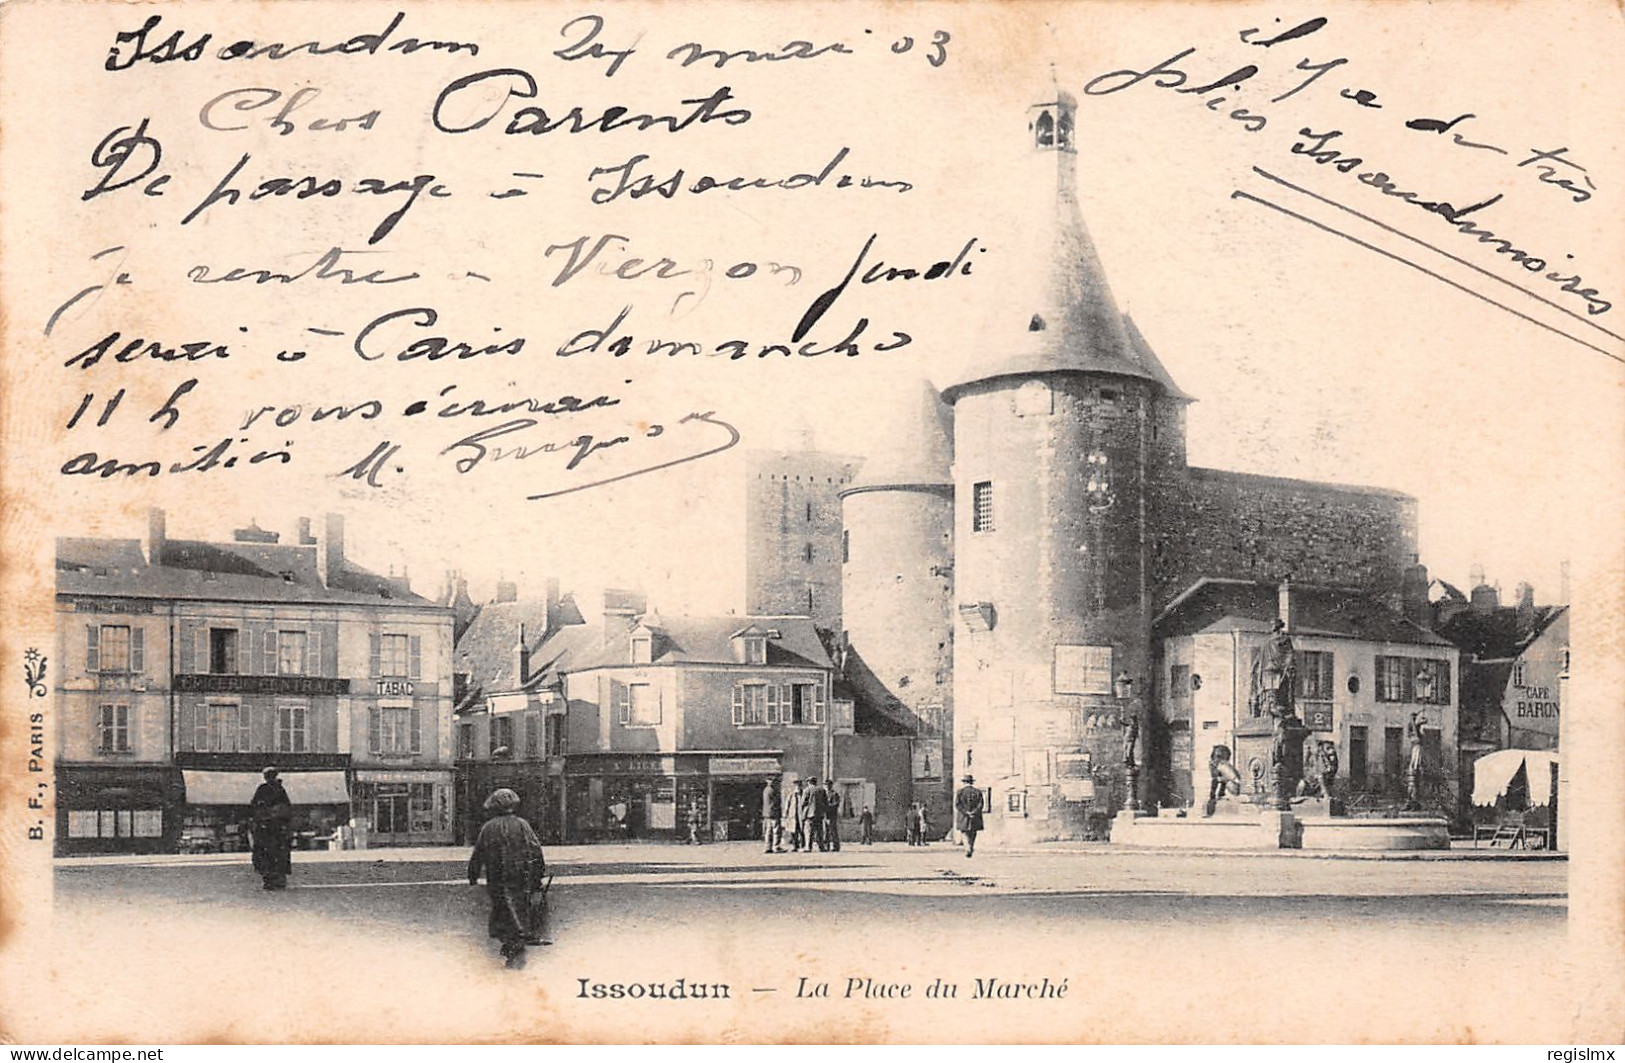 Issoudun 24 mai 03
Chers Parents
De passage à Issoudun
je rentre à Vierzon jeudi
serai à Paris dimanche
11 h vous écrirai
amitiés M.
il y a du très
jolies Issoudunoises
PHARMACIE
ÉPICERIE CENTRALE
TABAC
CAFÉ
BARON
2
B. F., PARIS
Issoudun — La Place du Marché
Delcampe.net
regislmx